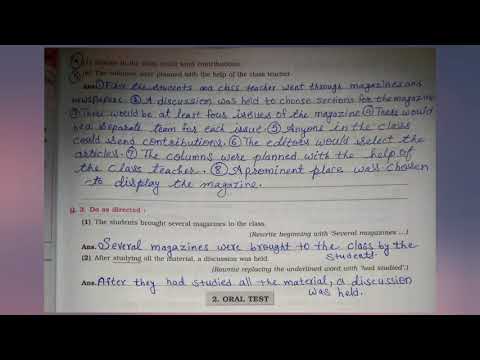 (7) Anyone in the class could send contributions.
(8) The columns were planned with the help of the class teacher.
Ans. ① First the students and class teacher went through magazines and
newspapers. ② A discussion was held to choose sections for the magazine
③ There would be at least four issues of the magazine ④ There would
be a separate team for each issue. ⑤ Anyone in the class
could send contributions. ⑥ The editors would select the
articles. ⑦ The columns were planned with the help of
the class teacher. ⑧ A prominent place was chosen
to display the magazine.
Q. 3. Do as directed :
(1) The students brought several magazines to the class.
(Rewrite beginning with 'Several magazines ...)
Ans. Several magazines were brought to the class by the
students.
(2) After studying all the material, a discussion was held.
(Rewrite replacing the underlined word with 'had studied'.)
Ans. After they had studied all the material, a discussion
was held.
2. ORAL TEST